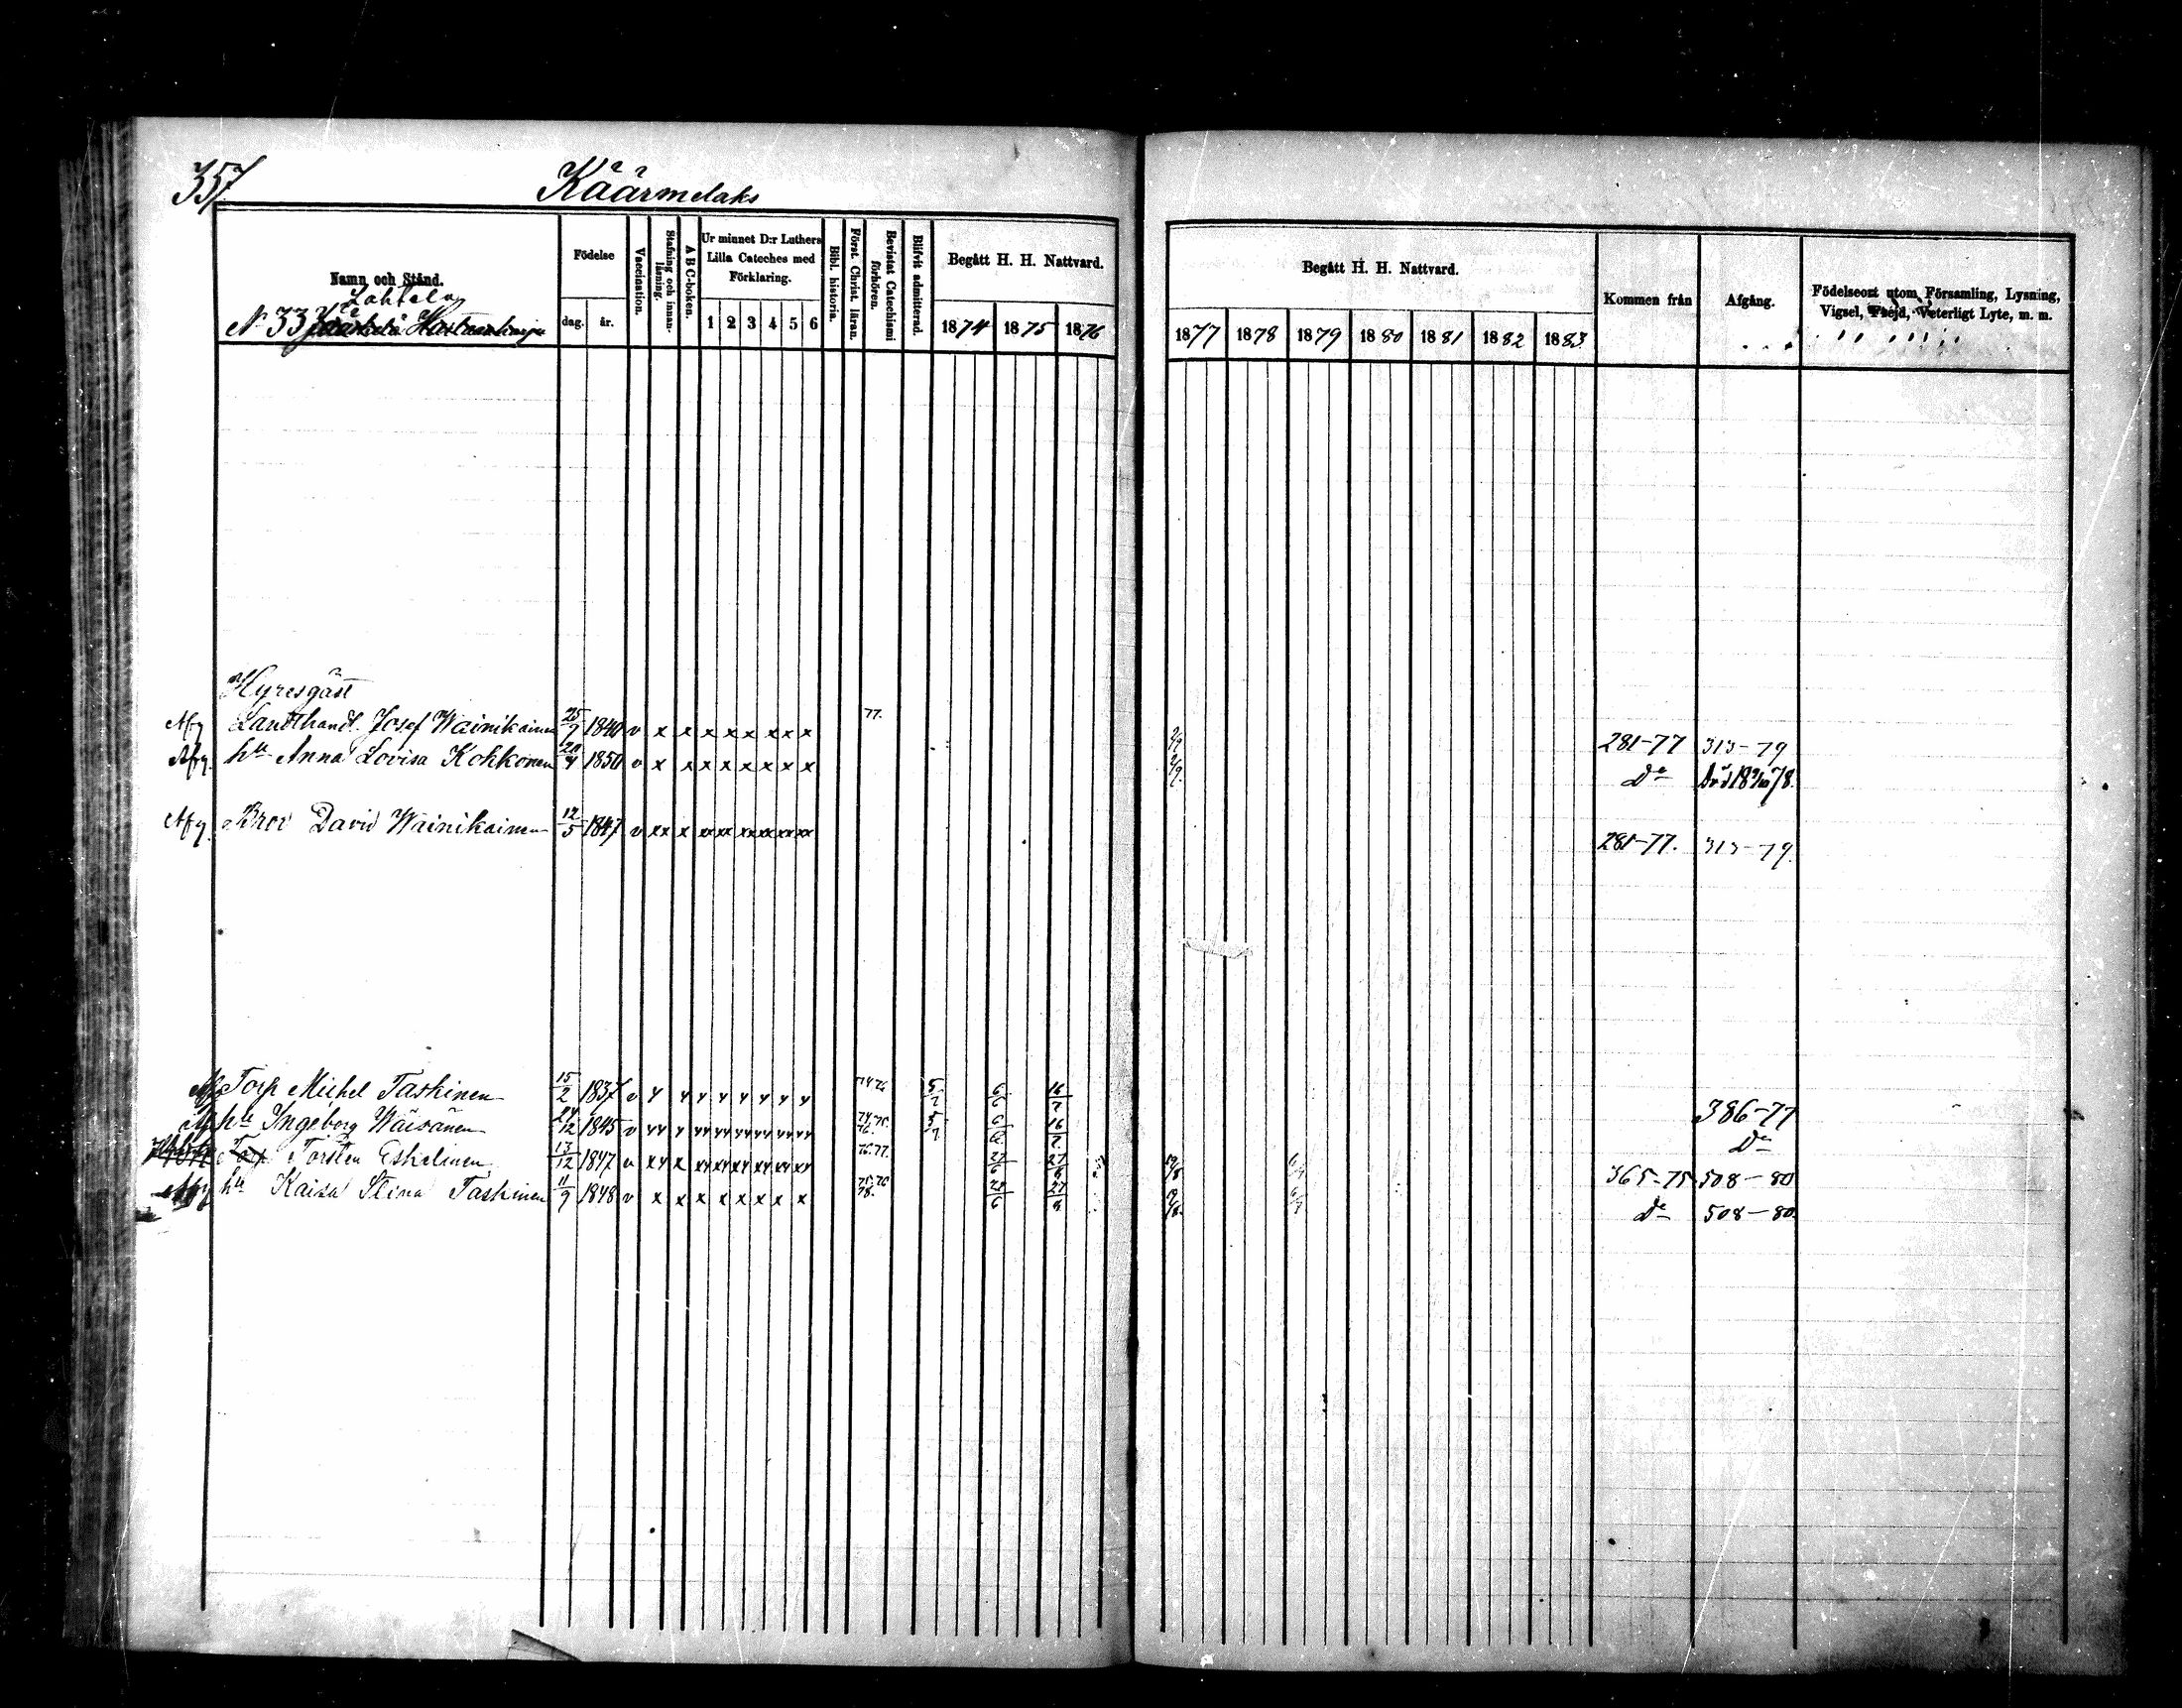 357
Käärmelaks
Namn och Stånd.
Lahtela
N 33
Födelse
dag. år.
Vaccination.
Stafning och innanläsning.
A B C-boken.
Ur minnet D:r Luthers Lilla Cateches med Förklaring.
1 2 3 4 5 6
Bibl. historia.
Först. Christ. läran.
Bevistat Catechismi förhören.
Blifvit admitterad.
Begått H. H. Nattvard.
1874 1875 1876
Begått H. H. Nattvard.
1877 1878 1879 1880 1881 1882 1883
Kommen från
Afgång.
Födelseort utom Församling, Lysning, Vigsel, Frejd, Veterligt Lyte, m. m.
Hyresgäst
Afg Landthandl. Josef Wainikainen 25/9 1840 v x x x x x x x x 77. 2/9 281-77 313-79
Afg. hu Anna Lovisa Kohkonen 20/4 1850 v x x x x x x x x 2/9 Do Död 18 9/10 78.
Afg. Bror David Wainikainen 12/5 1847 v xx x xx xx xx xx xx xx 281-77. 313-79.
Afg Torp Michel Taskinen 15/2 1837 v y y y y y y y y 5/7 6/6 16/7 386-77
Afg hu Ingeborg Wäisänen 24/12 1845 v yy y yy yy yy yy yy yy 74.75. 76. 5/7 6/6 16/7 Do
Torp Torsten Eskelinen 13/12 1847 v xy x xy xy xy xy xy xy 76.77. 27/6 27/8 19/8 6/7 365-75 508-80
Afg hu Kaisa Stina Taskinen 11/9 1848 v x x x x x x x x 75.76 78. 27/6 27/8 19/8 6/7 Do 508-80.